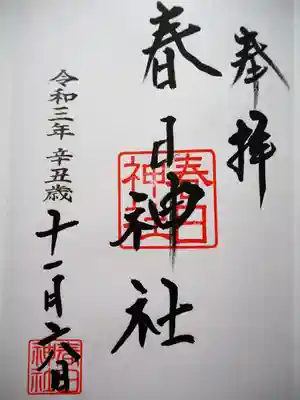 奉拝
春日神社
春日神社
令和三年 辛丑歳
十一月六日
春日神社